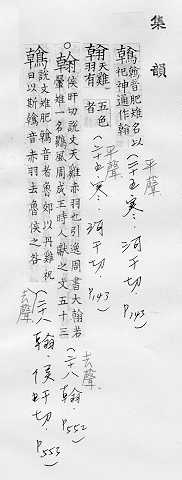 集韻
鶾 鶾音肥雉名以
平聲
祀神通作翰
(二十五寒·河干切·P.143)
翰 天雞一五色
平聲
羽有者
(二十五寒·河干切·P.143)
翰 侯旰切說文天雞赤羽也引逸周書大翰若
翬雉一名鷐風周成王時人獻之文五十三
去聲
(二十八翰·侯旰切·P.552)
鶾 說文雉肥鶾音者魯郊以丹雞祝
曰以斯鶾音赤羽去魯侯之咎
去聲
(二十八翰·侯旰切·P.553)